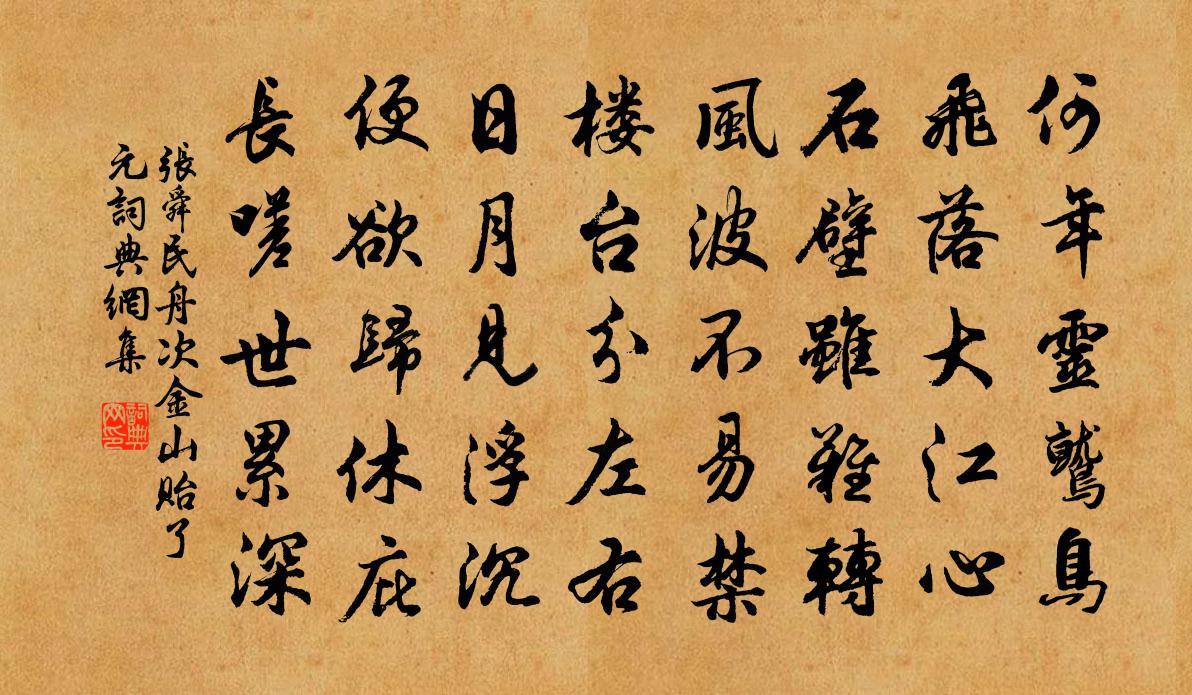 何年靈鷲鳥
飛落大江心
石壁雖難轉
風波不易禁
楼台分左右
日月見浮沉
便欲歸休庇
長嗟世累深
張舜民舟次金山貽了
元詞典網集
詞典
网印